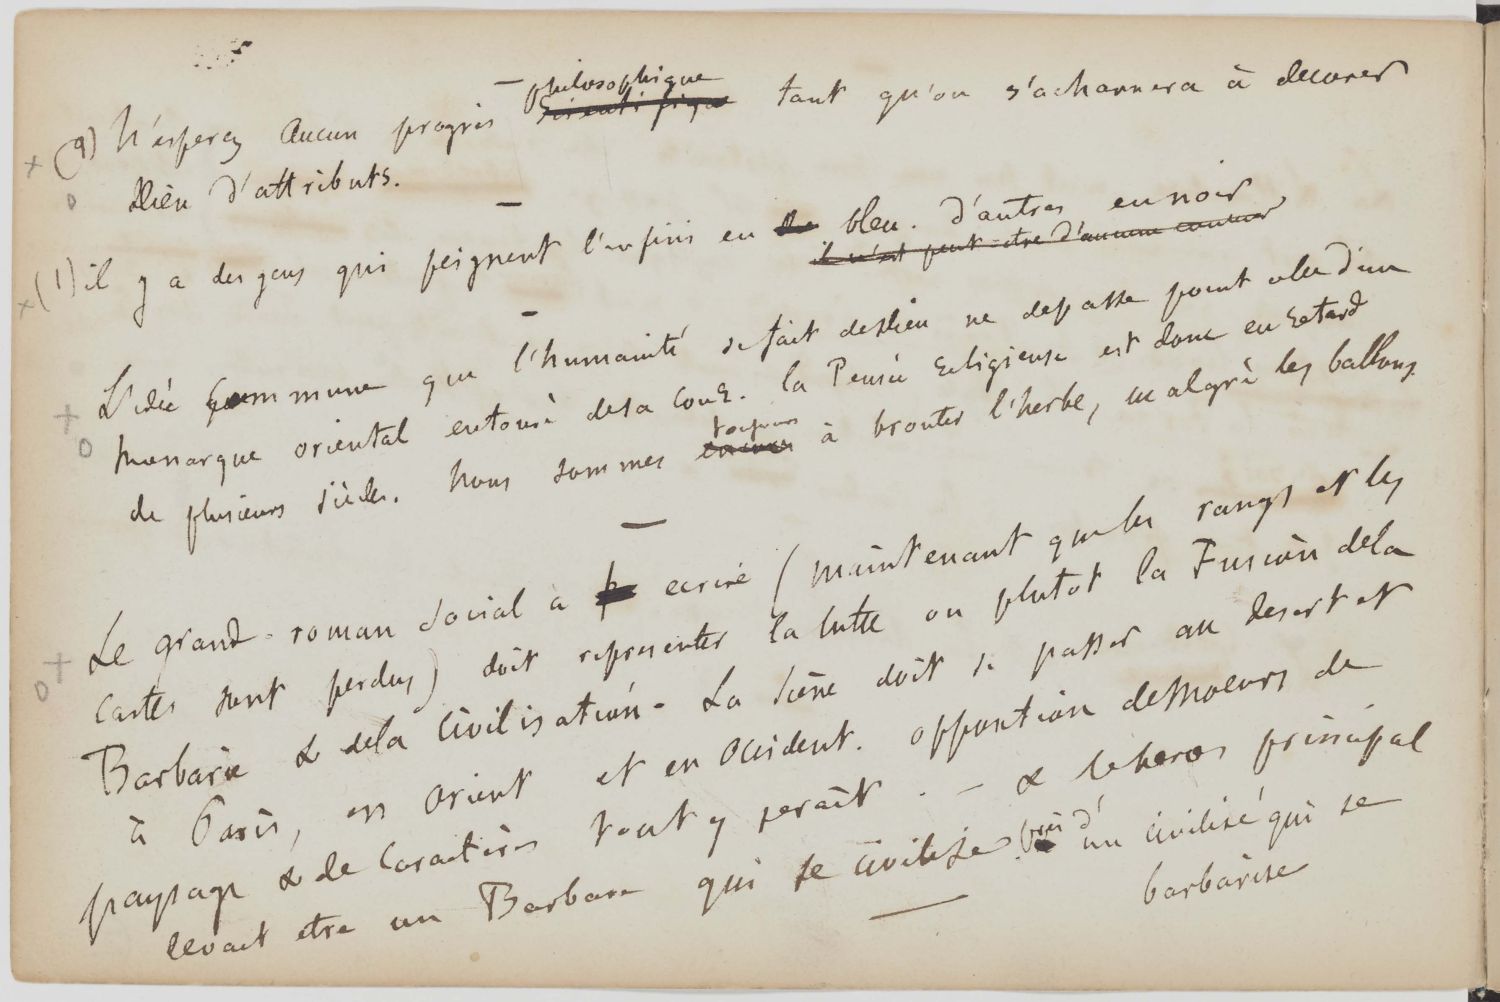 philosophique
(9) N'esperez Aucun progrès scientifique tant qu'on s'acharnera à decorer
Dieu d'attributs.
(1) il y a des gens qui peignent l'infini en bleu. d'autres en noir
il n'est peut-etre d'aucune couleur
L'idée commune que l'humanité se fait de Dieu ne depasse point celle d'un
monarque oriental entouré de sa cour. la Pensée religieuse est donc en retard
de plusieurs siècles. Nous sommes encore toujours à brouter l'herbe, malgré les ballons.
Le grand-roman social à ecrire (maintenant que les rangs et les
castes sont perdus) doit representer la lutte ou plutot la Fusion de la
Barbarie & de la Civilisation - La Scène doit se passer au desert et
à Paris, en Orient et en Occident. opposition de Moeurs de
paysage & de Caractères tout y serait. - & le heros principal
devait etre un Barbare qui se civilise près d'un civilisé qui se
barbarise